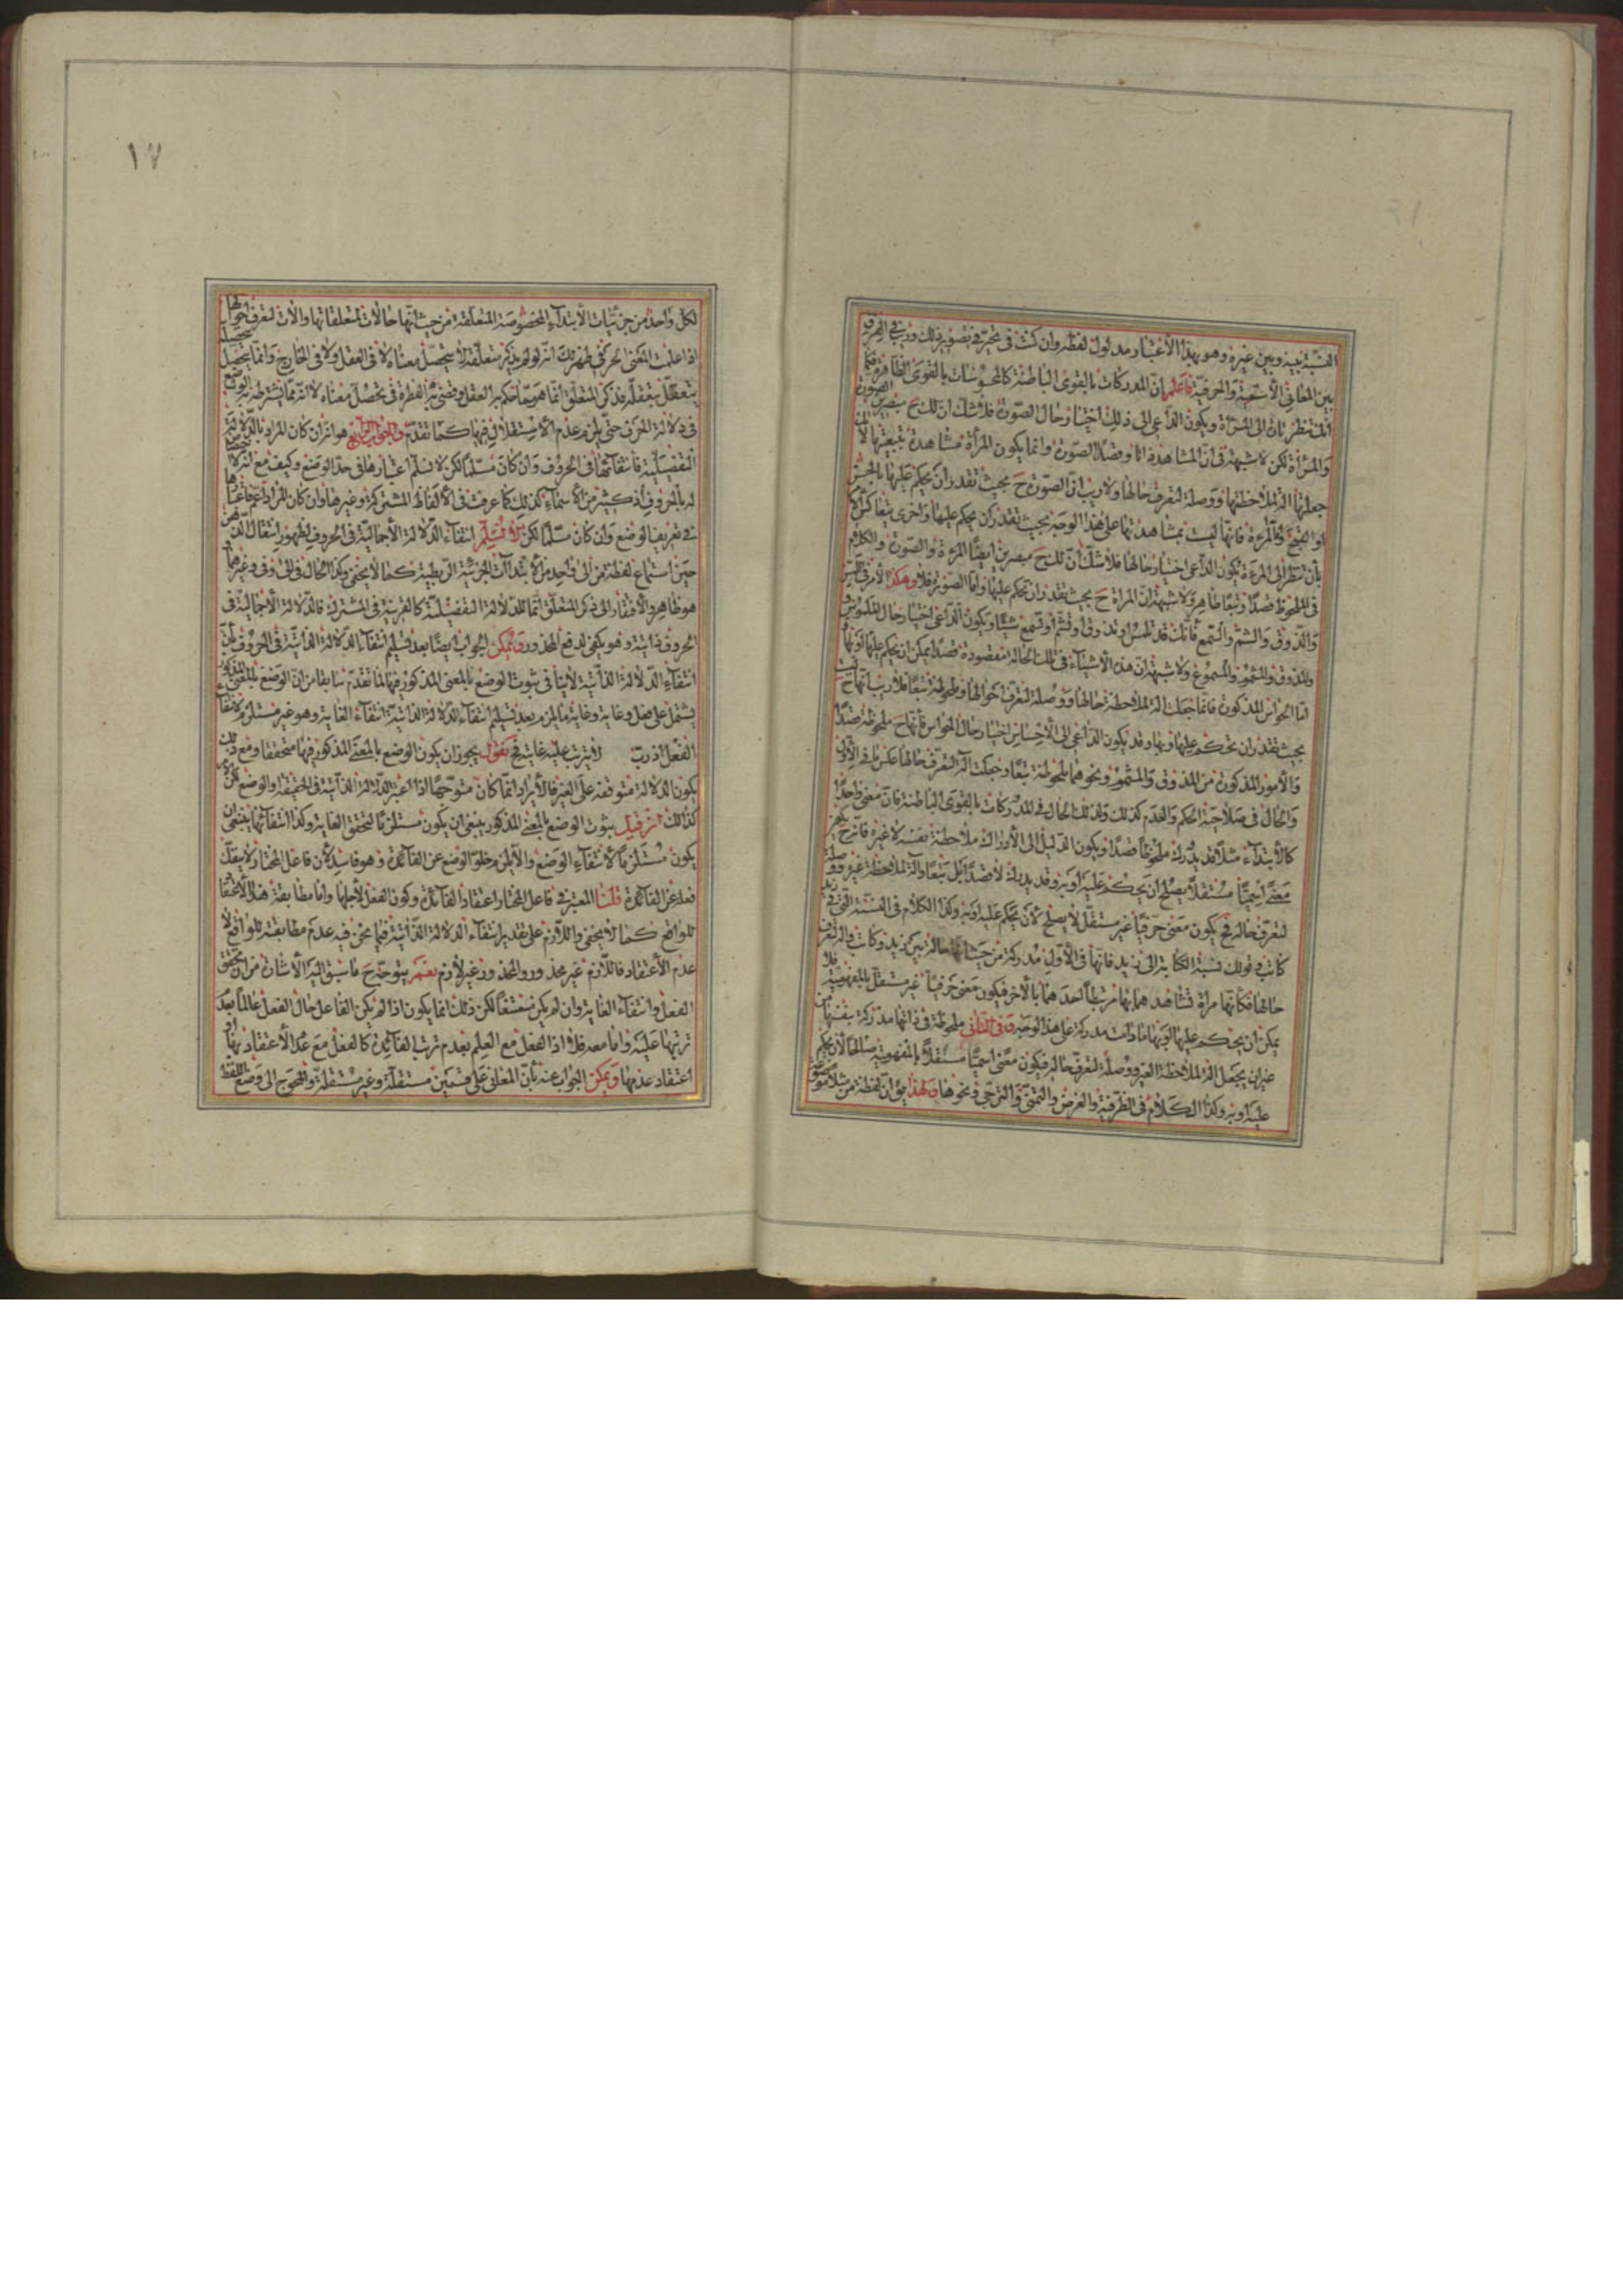 النسبة بينه وبين غيره وهو بهذا الاعتبار مدلول لفظه وان كنت فى تحيّر فى تصوير ذلك وريب فى الفرق
بين المعانى الاسميّة والحرفيّة فاعلم انّ المدركات بالقوى الباطنة كالمحسوسات بالقوى الظاهرة فكما
انّك تنظر تارة الى المرآة ويكون الداعى الى ذلك اختبار حال الصّورة فلا شك ان تلك ح مبصرين الصورة
والمرآة لكن لا شبهة فى انّ المشاهدة اذا وقصدا الصّورة وانما يكون المرآة مشاهدة بتبعيّتها لانك
جعلتها الة لملاحظتها ووصلة لتعرف حالها ولا ريب انّ الصّورة ح بحيث تقدر ان تحكم عليها بالحسن
او القبح لا المرءة فانّها ليست بمشاهدتها على هذا الوجه بحيث تقدر ان يحكم عليها واخرى يتعاكس الامر
بأن تنظر الى المرءة ويكون الداعى اختبار حالها فلا شكّ انّ تلك ح مبصرين ايضا المرءة والصّورة والكلام
فى الملحوظ قصدا وتبعا ظاهر ولا شبهة انّ المراة ح بحيث تقدر ان تحكم عليها وامّا الصورة فلا وهكذا الامر فى اللمس
والذّوق والشمّ والسّمع فانّك قد تلمس او تذوق او تشم او تسمع شيئا ويكون الداعى اختبار حال الملموس و
والمذوق والمشموم والمسموع ولا شبهة انّ هذه الاشياء فى تلك الحالة مقصودة قصدا يمكن ان يحكم عليها او بها و
امّا الحواس المذكورة فانما جعلت الة لملاحظة حالها ووصلة لتعرف احوالها وملحوظة تبعا فلا ريب انها ح ليست
بحيث تقدر ان تحكم عليها وبها وقد يكون الداعى الى الاحساس اختبار حال الحواس فانّها ح ملحوظة قصدا
والامور المذكورة من المذوق والمشموم ونحوهما ملحوظة تبعا وجعلت الة لتعرف حالها عكس ما فى الاول
والحال فى صلاحية الحكم والعدم كذلك ولذلك الحال فى المدركات بالقوى الباطنة فان معنى واحدا
كالابتداء مثلا قد يدرك ملحوظا قصدا ويكون الدليل الى الادراك ملاحظة نفسه لا غيره فانه ح يكون
معنى اسميّا مستقلّا يصلح ان يحكم عليه او به وقد يدرك لا قصدا بل تبعا وآلة لملاحظة غيره ووصلة
لتعرف حاله فح يكون معنى حرفيا غير مستقل لا يصلح لان يحكم عليه او به وكذا الكلام فى النسبة التى فى زيد
كاتب وقولك نسبة الكتابة الى زيد فانها فى الاول مدركة من حيث انها حالة بين زيد وكاتب والة لتعرف
حالها فكأنها مرآة تشاهدهما بها مرتبطا احدهما بالاخر فيكون معنى حرفيا غير مستقل بالمفهومية فلا
يمكن ان يحكم عليها او بها ما دامت مدركة على هذا الوجه وفى الثانى ملحوظة فى ذاتها مدركة بنفسها من
غير ان يجعل الة لملاحظة الغير ووصلة لتعرف حاله فيكون معنى اسميا مستقلا بالمفهومية صالحا لان يحكم
عليه او به وكذا الكلام فى الظرفية والغرض والتمنى والترجى ونحوها ولهذا يق ان لفظة من مثلا موضوع
١٧
لكل واحد من جزئيات الابتداء المخصوصة المتعلقة من حيث انها حالات لمتعلقاتها والات لتعرف احوالها
اذا علمت المعنى الحرفى ظهر لك انه لو لم يذكر متعلّقه لا يتحصل معناه لا فى العقل ولا فى الخارج وانما يتحصل
بتعقل متعلقه فذكر المتعلّق انما هو مما حكم به العقل وقضى به الفطرة فى تحصل معناه لا انه مما يشترطه الواضع
فى دلالة الحرف حتى يلزم عدم الاستقلال فيها كما تقدم والجواب الرابع هو انه ان كان المراد بالدلالة
التفصيلية فانتفائها فى الحروف وان كان مسلّما لكن لا نسلم اعتبارها فى حد الوضع وكيف مع انه لا
له بالحروف اذ كثير من الاسماء كذلك كما عرفت فى الالفاظ المشتركة وغيرها وان كان المراد اعم فاعتبارها
فى تعريف الوضع وان كان مسلّما لكن لا نسلّم انتفاء الدلالة الاجمالية فى الحروف لظهور انتقال الذهن
حين استماع لفظة من الى واحد من الابتدآت الجزئية الربطية كما لا يخفى وكذا الحال فى الى وفى وغيرهما
هو ظاهر والافتقار الى ذكر المتعلّق انما للدلالة التفصيلية كالقرينة فى المشترك فالدلالة الاجمالية فى
الحروف ذاتية وهو يكفى لدفع المحذور ويمكن الجواب ايضا بعد تسليم انتفاء الدلالة الذاتية فى الحروف بانّ
انتفاء الدلالة الذاتية لا ينافى ثبوت الوضع بالمعنى المذكور فيها لما تقدم سابقا من ان الوضع بالمعنى المذكور
يشتمل على فعل وغاية وغاية ما يلزم بعد تسليم انتفاء الدلالة الذاتية انتفاء الغاية وهو غير مستلزم لانتفاء
الفعل اذ ربّ لا يترتب عليه غايته فح نقول يجوز ان يكون الوضع بالمعنى المذكور فيها متحققا ومع ذلك
يكون الدلالة متوقفة على الغير فالايراد انما كان متوجّها اذا اعتبر الدلالة الذاتية فى الحقيقة والوضع
كذلك فان قيل ثبوت الوضع بالمعنى المذكور ينبغى ان يكون مستلزما لتحقق الغاية وكذا انتفائها ينبغى ان
يكون مستلزما لانتفاء الوضع والا يلزم خلوّ الوضع عن الفائدة وهو فاسد لان فاعل المختار لا ينفك
فعله عن الفائدة قلنا المعتبر فى فاعل المختار اعتقاد الفائدة وكون الفعل لاجلها وامّا مطابقة هذا الاعتقاد
للواقع كما لا يخفى واللازم على تقدير انتفاء الدلالة الذاتية فيما نحن فيه عدم مطابقته للواقع لا
عدم الاعتقاد فاللازم غير محذور والمحذور غير لازم نعم يتوجّه ح ما سبق اليه الاشارة من ان تحقق
الفعل وانتفاء الغاية وان لم يكن ممتنعا لكن ذلك انما يكون اذا لم يكن الفاعل حال الفعل عالما بعدم
ترتبها عليه وامّا معه فلا اذ الفعل مع العلم بعدم ترتب الفائدة كالفعل مع عدم الاعتقاد بها او
اعتقاد عدمها ويمكن الجواب عنه بانّ المعانى على قسمين مستقلة وغير مستقلة والمحوج الى وضع اللفظ